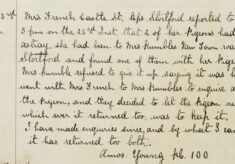 3rd
Mrs French Castle St. Bps Stortford reported to
5 pm on the 23rd Inst that 2 of her Pigeons had
astray, she had been to Mrs Rumbles New Town
Stortford and found one of them with her Pigeons
Mrs Rumble refused to give it up saying it was
went with Mrs French to Mrs Rumbles to inquire
the Pigeon, and they decided to let the Pigeon
which ever it returned too, was to keep it.
I have made enquires since, and by what I can
it has returned too both.
Amos Young P.C. 100